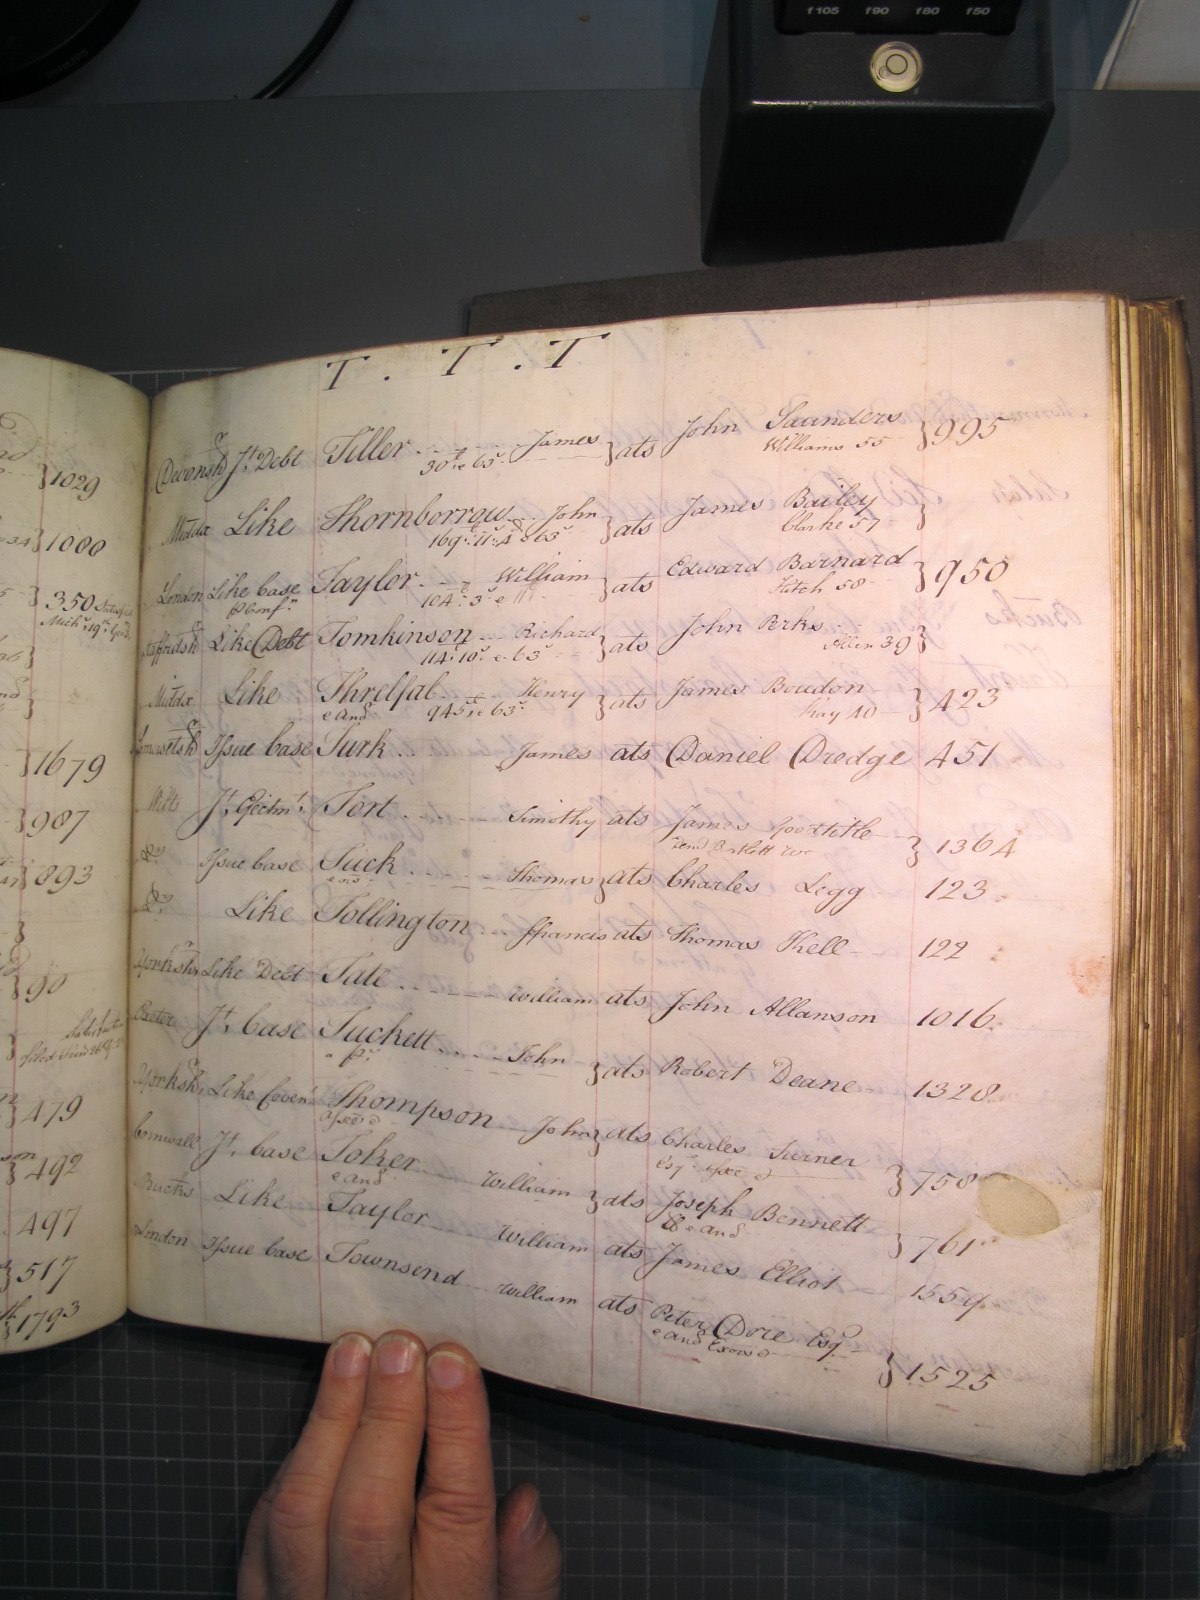 f105 f90 f80 f50
T. T. T
Devonsh Jt Debt Tiller James } ats John Saunders } 995
30 £ e 63s Williams 55
Middx Like Thornborrow John } ats James Bailey }
169:11:4 e 63s Clarke 57
London Like Case Tayler William } ats Edward Barnard } 950
p Conf 104:3 e Fitch 58
Staffordsh Like Debt Tomkinson Richard } ats John Perks }
114:10s e 63s Allen 39
Middx Like Threlfal Henry } ats James Boudon } 423
e and 945 £ e 63s Kay 40
Somersetsh Issue Case Turk James ats Daniel Dredge 451
Wilts Jt Ejectmt Tort Timothy ats James Goodtitle } 1364
Demd Bartlett
Do Issue Case Tuck Thomas } ats Charles Legg 123
e and
Do Like Tollington ffrancis ats Thomas Kell 122
Yorksh Like Debt Tate William ats John Allanson 1016
Exeter Jt Case Tuckett John } ats Robert Deane 1328
Yorksh Like Coven Thompson John } ats Charles Turner } 758
Esqr
Cornwall Jt Case Toker William } ats Joseph Bennett } 761
e and e and
Bucks Like Taylor William ats James Elliot 1559
London Issue Case Townsend William ats Peter Dore Esqr } 1525
e and
1029
1000
350
Mich 19th Geo 3
1679
987
893
90
479
492
497
517
1793